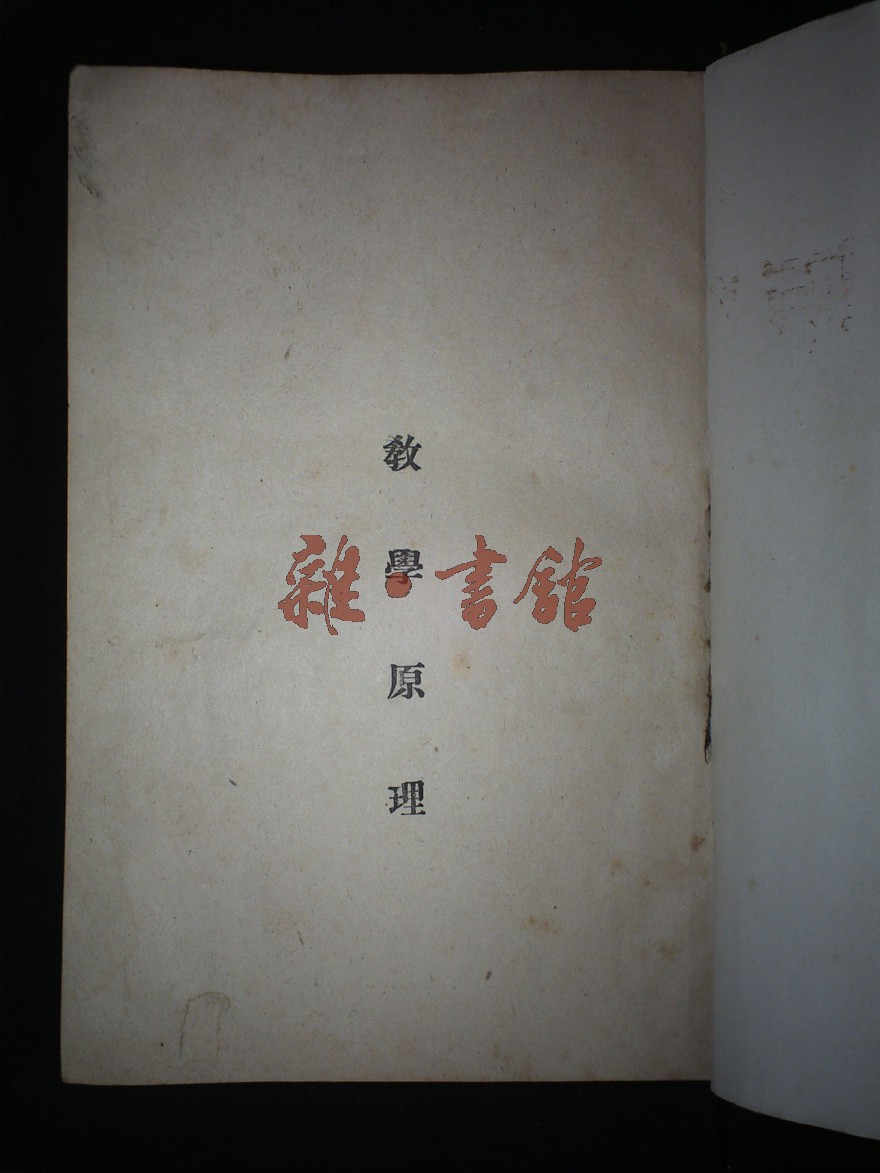 敎學原理
雜·書館